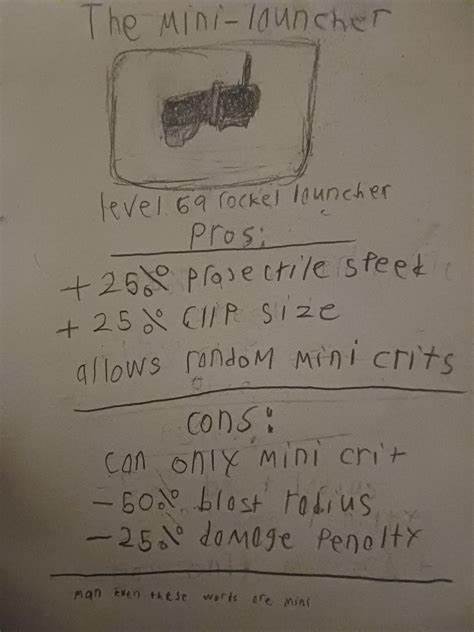 The mini-launcher
level 69 rocket launcher
Pros:
+ 25% projectile speed
+ 25% Clip size
allows random mini crits
cons:
can only mini crit
- 50% blast radius
- 25% damage penalty
man even these words are mini